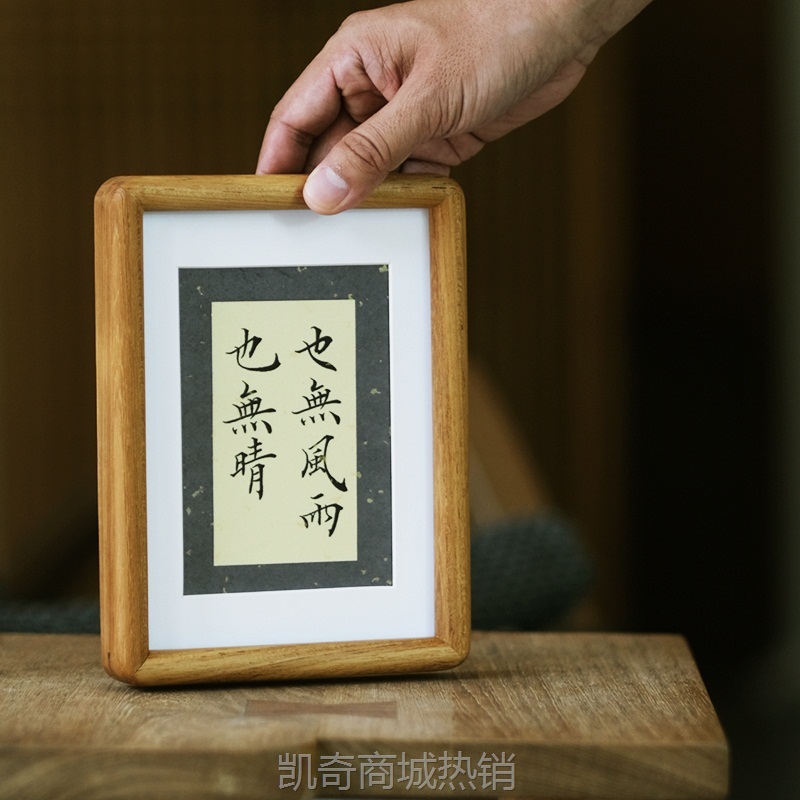 也無風雨
也無晴
凯奇商城热销